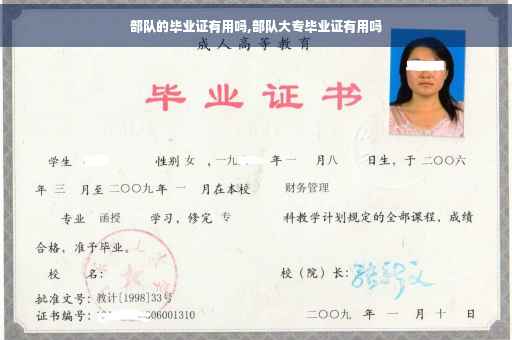 部队的毕业证有用吗,部队大专毕业证有用吗
成人高等教育
毕业证书
学生 性别 女 ,一九 年一 月八 日生,于二〇〇六
年 三 月至二〇〇九年 一 月在本校 财务管理
专业 函授 学习,修完 专 科教学计划规定的全部课程,成绩
合格,准予毕业。
校 名: 校(院)长:
批准文号:教计[1998]33号
证书编号: 006001310 二〇〇九 年 一 月 十 日